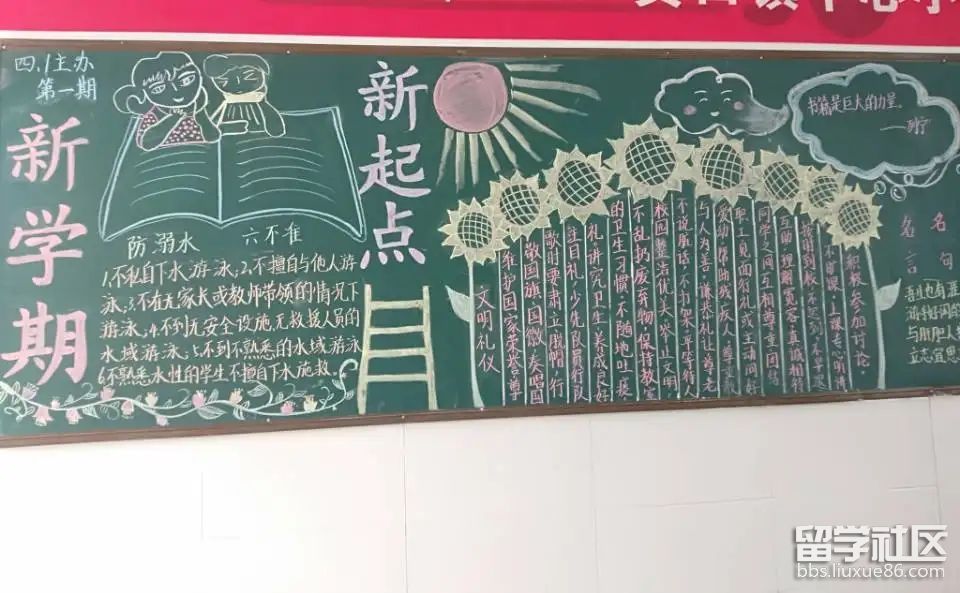 四.1主办
第一期
新学期
新起点
防溺水 六不准
1.不私自下水游泳;2.不擅自与他人游
泳;3.不在无家长或教师带领的情况下
游泳;4.不到无安全设施、无救援人员的
水域游泳;5.不到不熟悉的水域游泳
6.不熟悉水性的学生不擅自下水施救.
文明礼仪
维护国家荣誉尊
敬国旗、国徽、奏唱国
歌时要肃立脱帽、行
注目礼,少先队员行队
礼,讲究卫生,养成良好
的卫生习惯,不随地吐痰
不乱扔废弃物,保持教室
校园整洁优美,举止文明,
不说脏话,不打架,平等待人
与人为善,谦恭礼让,尊老
爱幼,帮助残疾人,尊重教
职工,见面行礼或主动问好
同学之间互相尊重,团结
互助,理解宽容,真诚相待
按时到校,不迟到,不早退
不旷课,上课专心听讲
积极参加讨论
书籍是巨大的力量。
——列宁
名言
名句
吾生也有涯
立志宜思